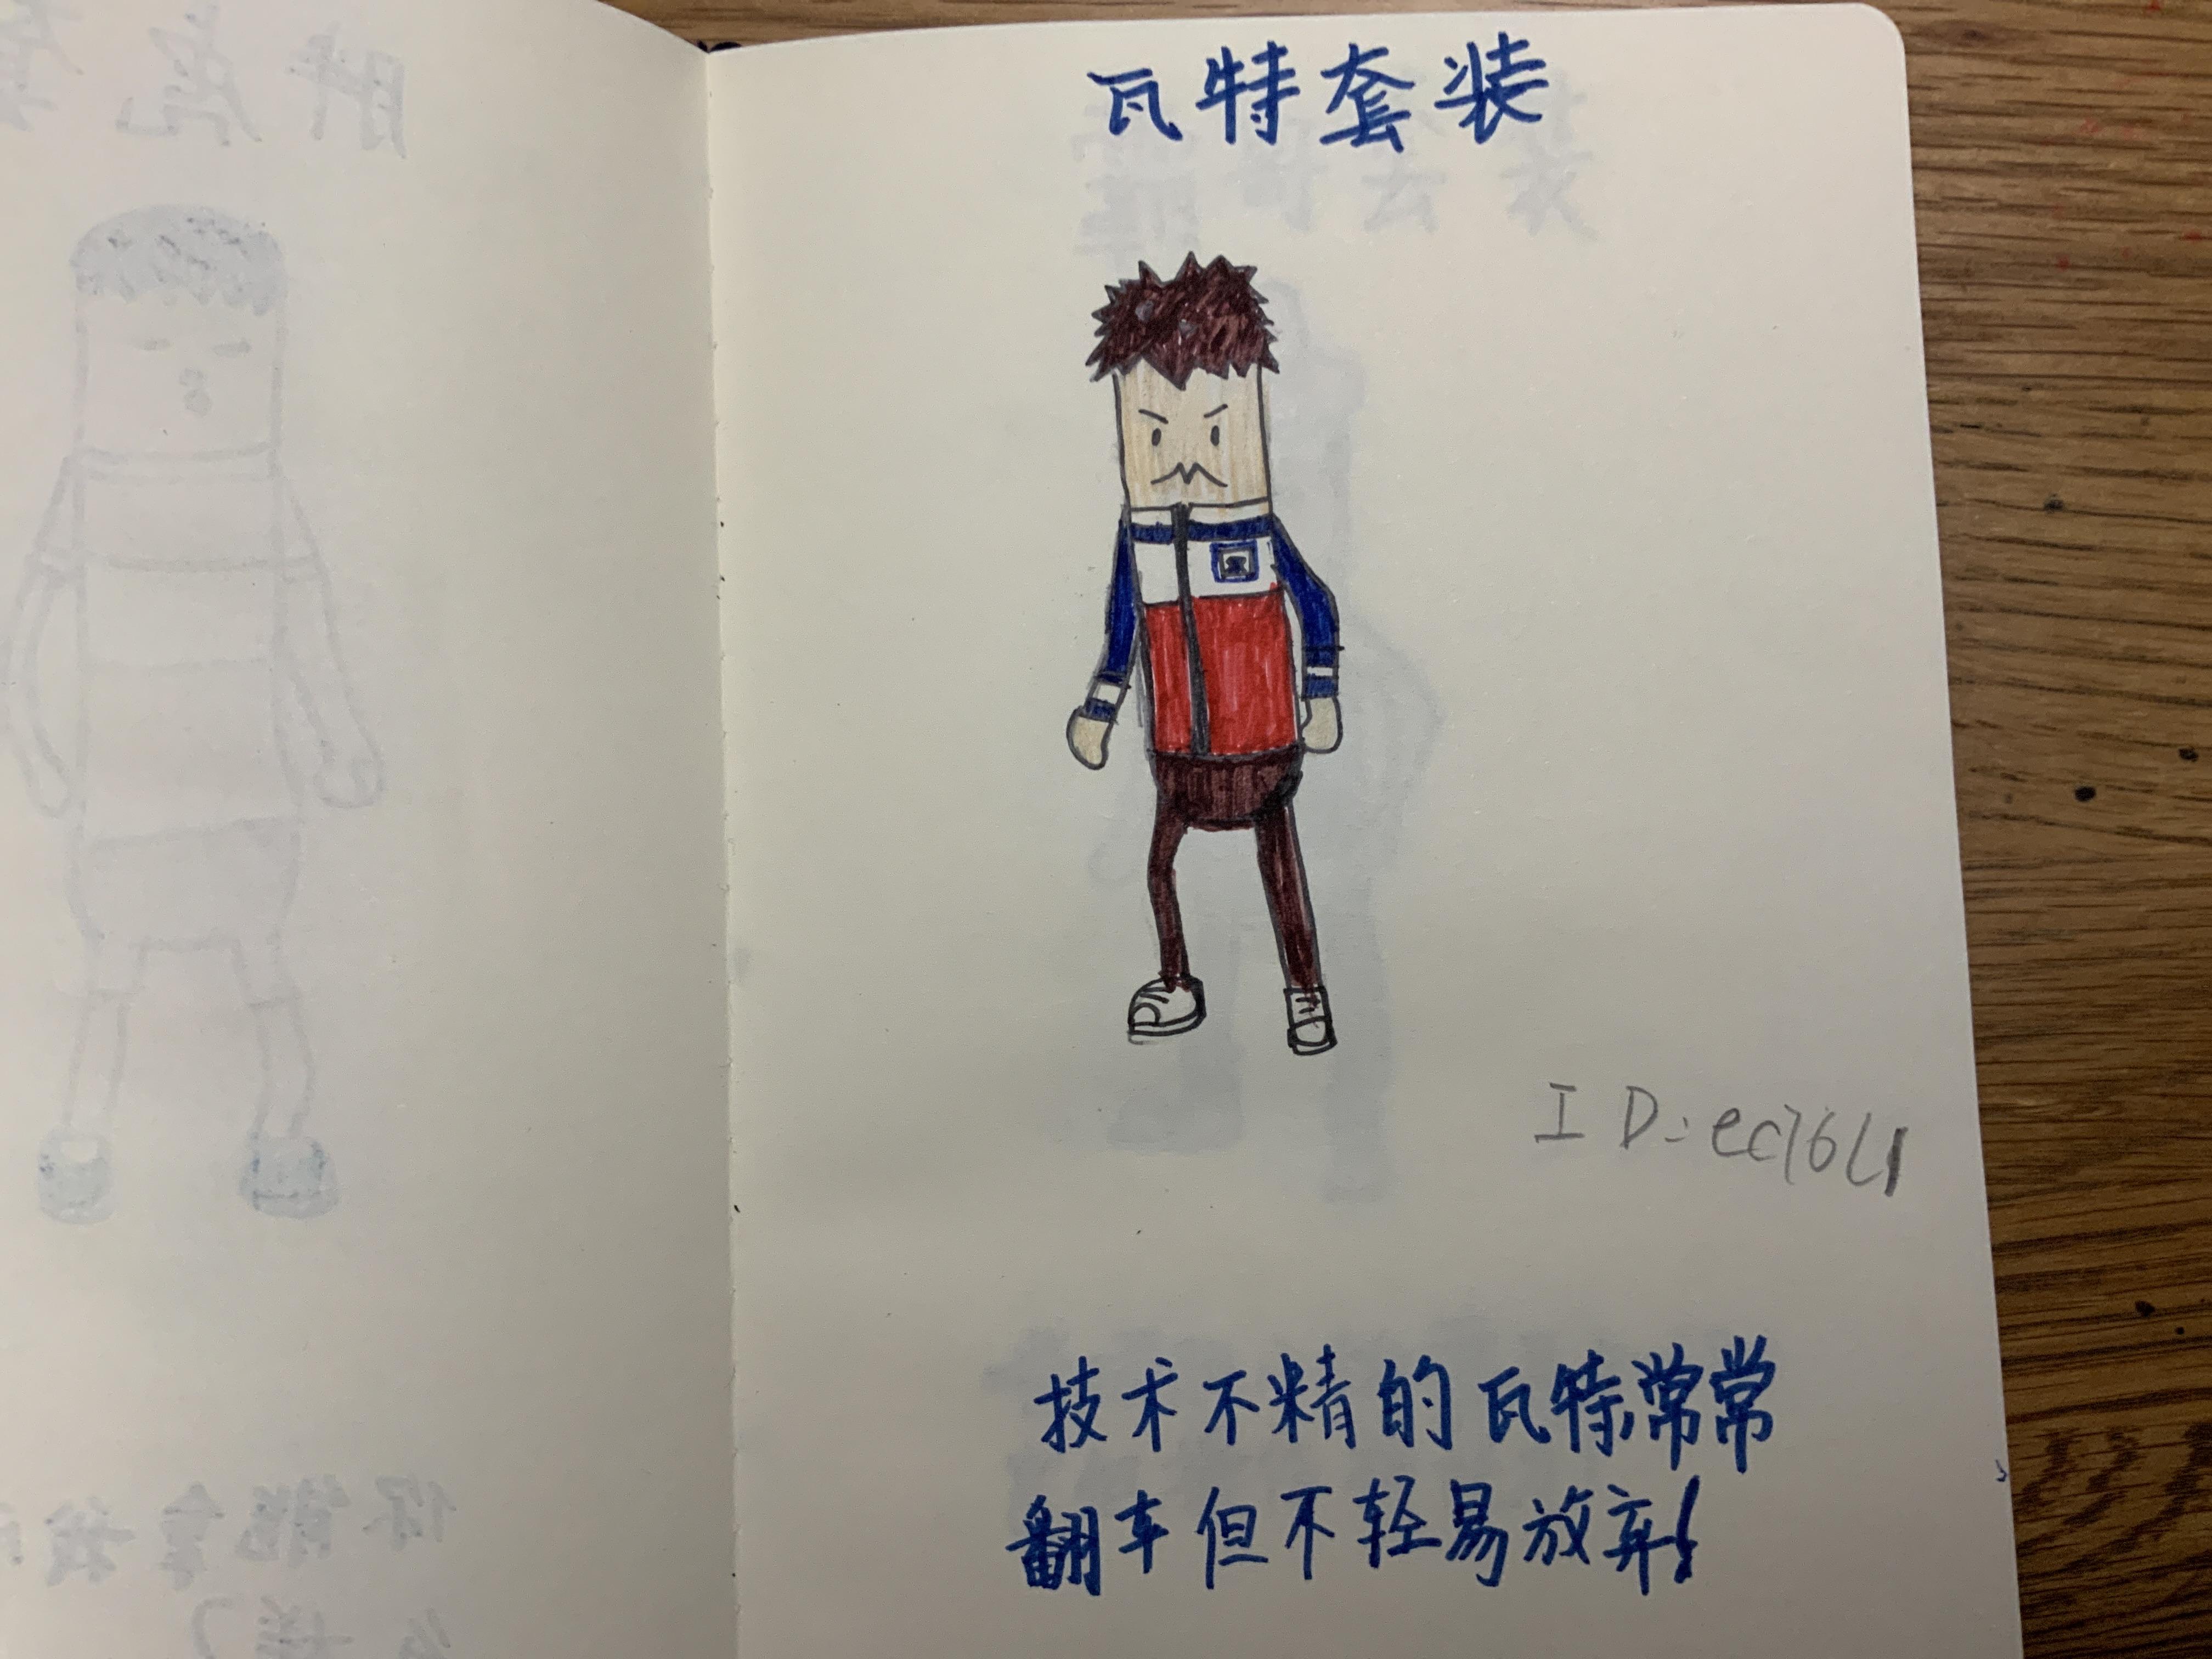 瓦特套装
ID:ec76L1
技术不精的瓦特常常
翻车但不轻易放弃!